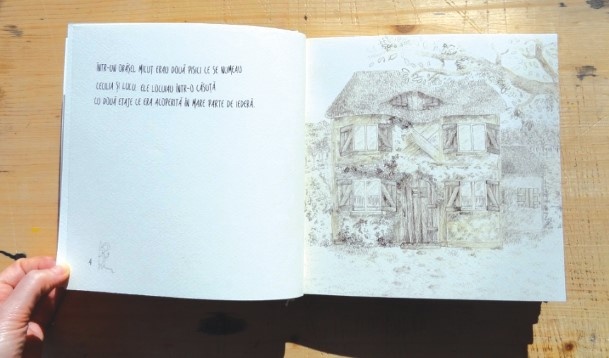 ÎNTR-UN ORĂȘEL MICUȚ ERAU DOUĂ PISICI CE SE NUMEAU
CECILIA ȘI LULU. ELE LOCUIAU ÎNTR-O CĂSUȚĂ
CU DOUĂ ETAJE CE ERA ACOPERITĂ ÎN MARE PARTE DE IEDERĂ.
4